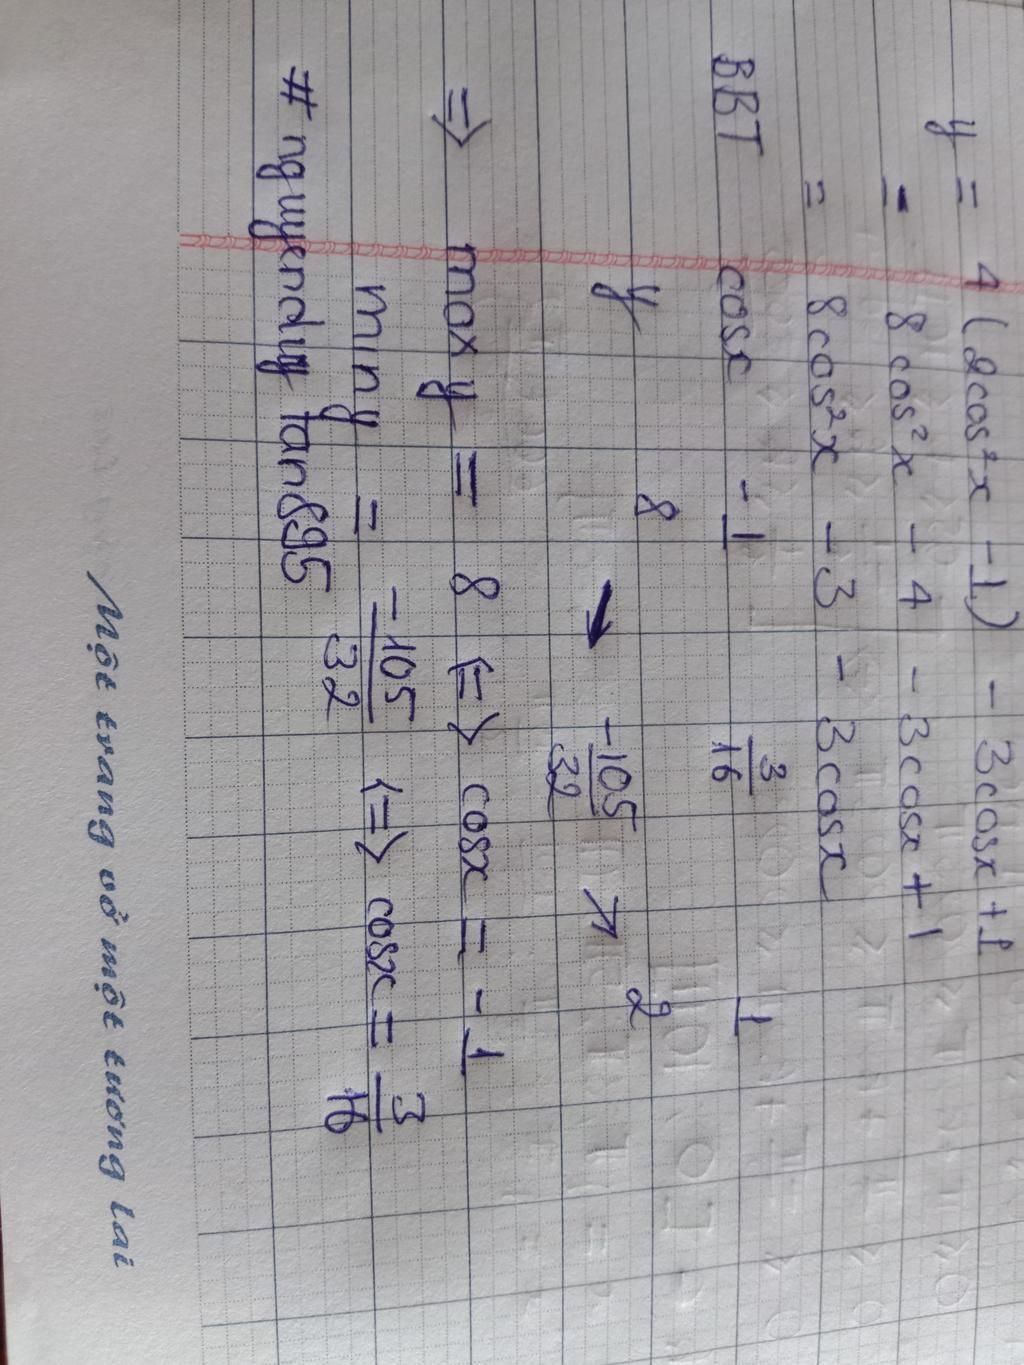 y = 4(2cos²x - 1) - 3cosx + 1
= 8cos²x - 4 - 3cosx + 1
= 8cos²x - 3 - 3cosx
BBT cosx -1 3/16 1
y 8 ↘ -105/32 ↗ 2
=> max y = 8 <=> cosx = -1
min y = -105/32 <=> cosx = 3/16
# nguyenduy tan895
Một trang vở một tương lai